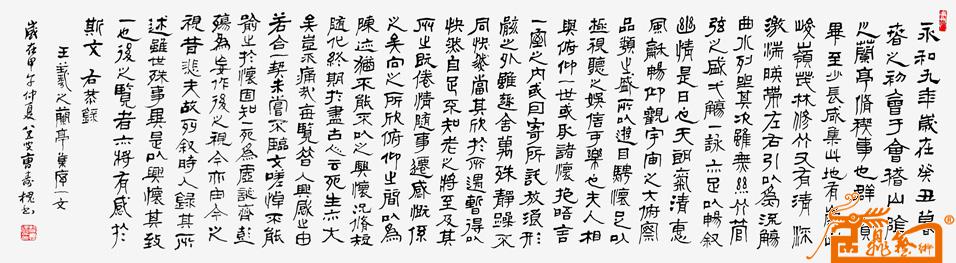 永和九年歲在癸丑暮
春之初會于會稽山陰
之蘭亭脩稧事也群賢
畢至少長咸集此地有
峻嶺茂林修竹又有清流
激湍暎帶左右引以為流觴
曲水列坐其次雖無絲竹管
弦之盛一觴一詠亦足以暢叙
幽情是日也天朗氣清惠
風龢暢仰觀宇宙之大俯察
品類之盛所以遊目騁懷足以
極視聽之娛信可樂也夫人相
與俯仰一世或取諸懷抱晤言
一室之內或因寄所託放浪形
骸之外雖趣舍萬殊靜躁不
同快然當其欣於所遇暫得以
快然自足不知老之將至及其
所之既倦情隨事遷感慨係
之矣向之所欣俯仰之間以為
陳迹猶不能不以之興懷況脩短
隨化終期於盡古人云死生亦大
矣豈不痛哉每覽昔人興感之由
若合一契未嘗不臨文嗟悼不能
喻之於懷固知一死為虛誕齊彭
殤為妄作後之視今亦由今之
視昔悲夫故列叙時人錄其所
述雖世殊事異是以興懷其致
一也後之覽者亦將有感於
斯文 右恭錄
王羲之蘭亭集序一文
歲在甲午仲夏